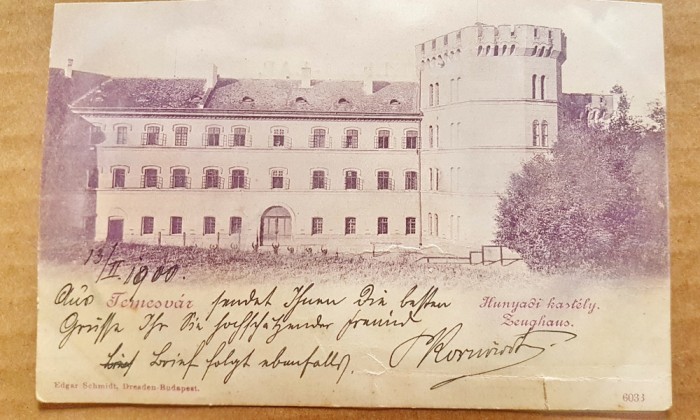 13/II 1900.
Aus Temesvár sendet Ihnen die besten
Grüsse Ihr Sie hochschätzender Freund
Brief folgt ebenfalls.
Hunyadi kastély.
Zeughaus.
Edgar Schmidt, Dresden-Budapest.
6033